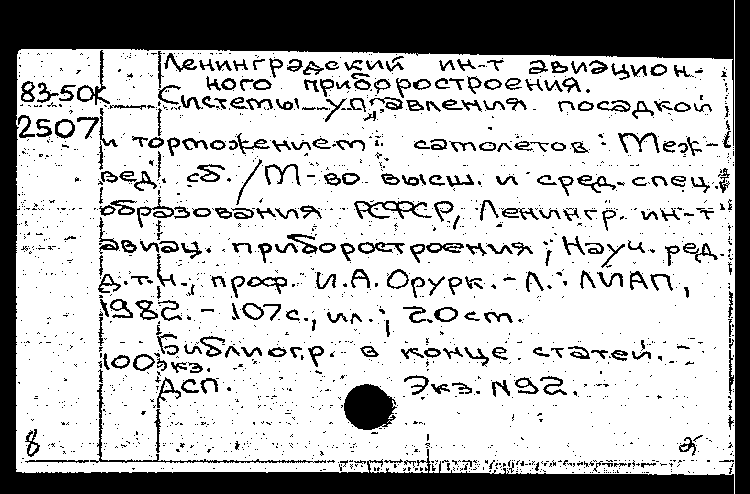 Ленинградский ин-т авиацион-
ного приборостроения.
83-50К Системы управления посадкой
2507
и торможением самолетов: Меж-
вед. сб. / М-во высш. и сред. спец.
образования РСФСР, Ленингр. ин-т
авиац. приборостроения; Науч. ред.
д.т.н., проф. И.А. Орурк. - Л.: ЛИАП,
1982. - 107с., ил.; 20см.
Библиогр. в конце статей. -
100 экз.
ДСП. Экз. N92.
8